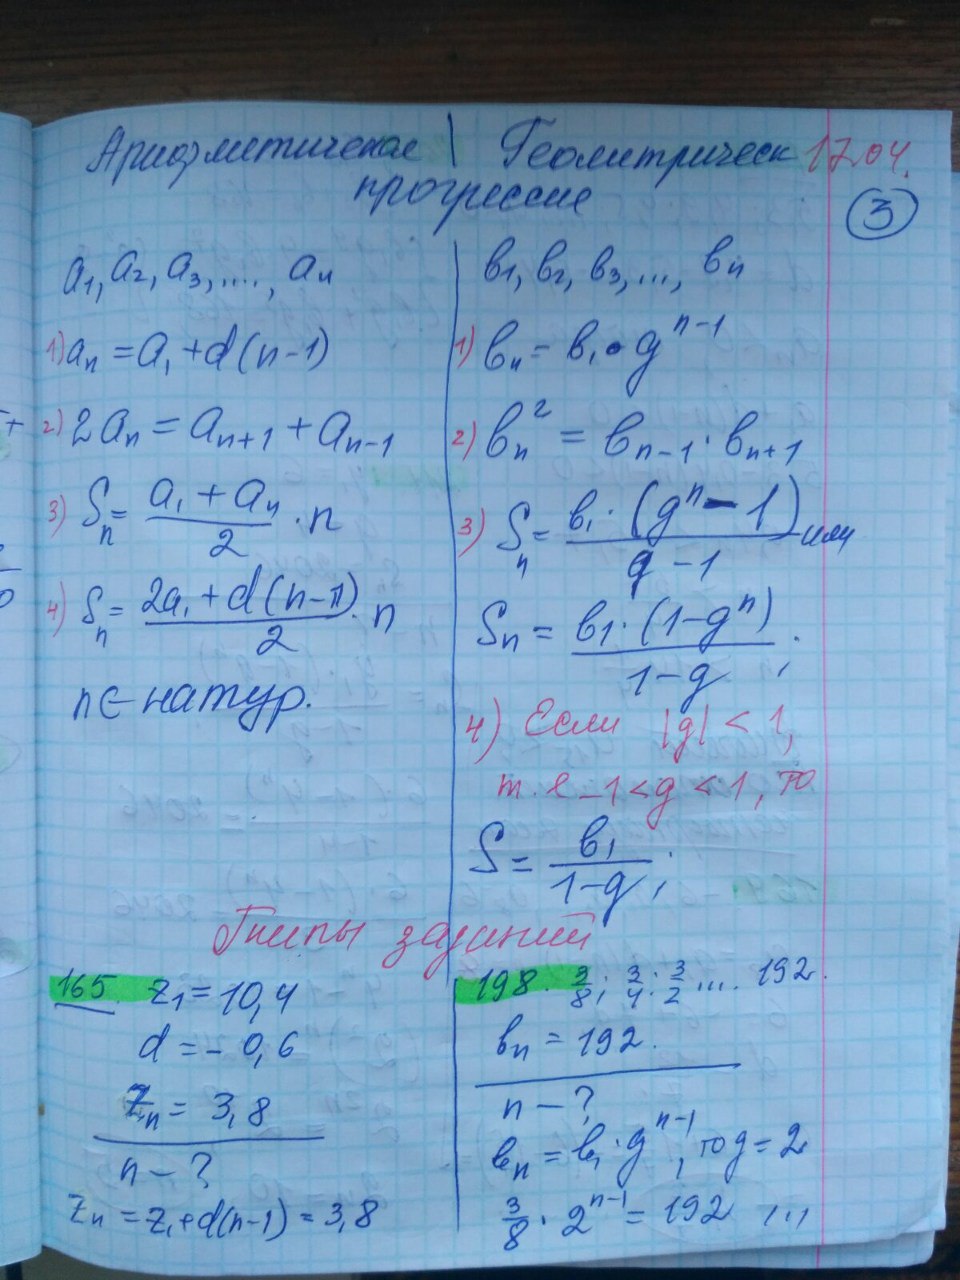 Арифметическая | Геометрическ 17.04.
прогрессие
3
a₁, a₂, a₃, ...., aₙ
1) aₙ = a₁ + d(n-1)
2) 2aₙ = aₙ₊₁ + aₙ₋₁
3) Sₙ = (a₁ + aₙ)/2 · n
4) Sₙ = (2a₁ + d(n-1))/2 · n
n ∈ натур.
в₁, в₂, в₃, ..., вₙ
1) вₙ = в₁ • g^(n-1)
2) вₙ² = вₙ₋₁ · вₙ₊₁
3) Sₙ = (в₁ · (gⁿ - 1))/(g - 1) или
Sₙ = (в₁ · (1-gⁿ))/(1-g) ;
4) Если |g| < 1,
т.е -1 < g < 1, то
S = в₁/(1-g) ;
Типы заданий
165. z₁ = 10,4
d = - 0,6
zₙ = 3,8
n - ?
zₙ = z₁ + d(n-1) = 3,8
198. 3/8; 3/4; 3/2 .... 192.
вₙ = 192.
n - ?
вₙ = в₁ · g^(n-1), то g = 2
3/8 · 2^(n-1) = 192 ...